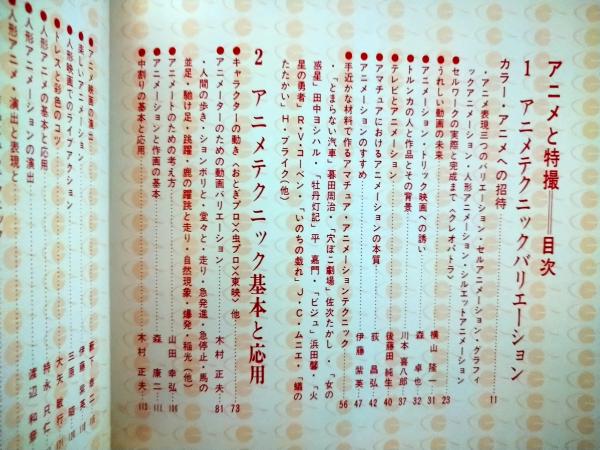 アニメと特撮══目次
1 アニメテクニックバリエーション
カラー・アニメへの招待…………11
・アニメ表現三つのバリエーション・セルアニメーション・グラフィックアニメーション・人形アニメーション・シルエットアニメーション
●セルワークの実際と完成まで〈クレオパトラ〉…………23
●うれしい動画の未来…………横山 隆一 31
●アニメーション・トリック映画への誘い…………森 卓也 32
●トルンカの人と作品とその背景…………川本 喜八郎 37
●テレビとアニメーション…………後藤田 純生 40
●アマチュアにおけるアニメーションの本質…………荻 昌弘 42
●アニメーションのすすめ…………伊藤 紫英 47
●手近かな材料で作るアマチュア・アニメーションテクニック…………56
・「とまらない汽車」暮田周治・「穴ぼこ劇場」佐次たかし・「女の
惑星」田中ヨシハル・「牡丹灯記」平 嘉門・「ビジュ」浜田馨・「火
星の勇者」R・V・コーベン・「いのちの戯れ」J・C・ムニエ・「蟻の
たたかい」H・ブライク(他)
2 アニメテクニック基本と応用
●キャラクターの動き〈おとぎプロ〉〈虫プロ〉〈東映〉他…………73
●アニメーターのための動画バリエーション…………木村 正夫 81
・人間の歩き・ションボリと・堂々と・走り・急発進・急停止・馬の
並足・馳け足・跳躍・鹿の躍跳と走り・自然現象・爆発・稲光(他)
●アニメートのための考え方…………山田 幸弘 106
●アニメーションと作画の基本…………森 康二 111
●中割りの基本と応用…………木村 正夫 113
●アニメ映画の演出…………
●楽しいアニメーション…………
●人形映画でのライブアクション…………
●トレスと彩色のコツ…………
●人形アニメの基本と応用…………持永 只仁
●人形アニメーションの演出…………渡辺 和彦
●人形アニメ・演出と表現と